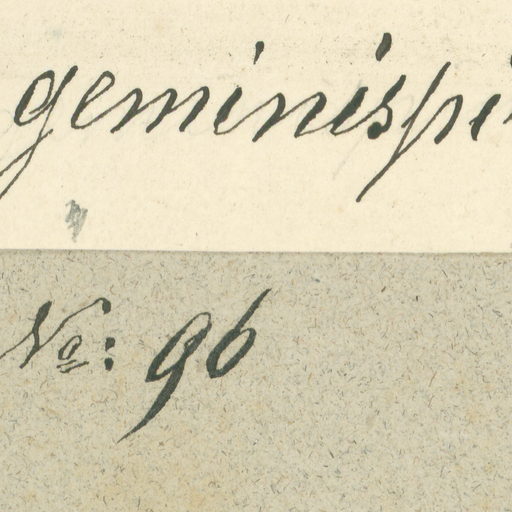 geminispi
No: 96